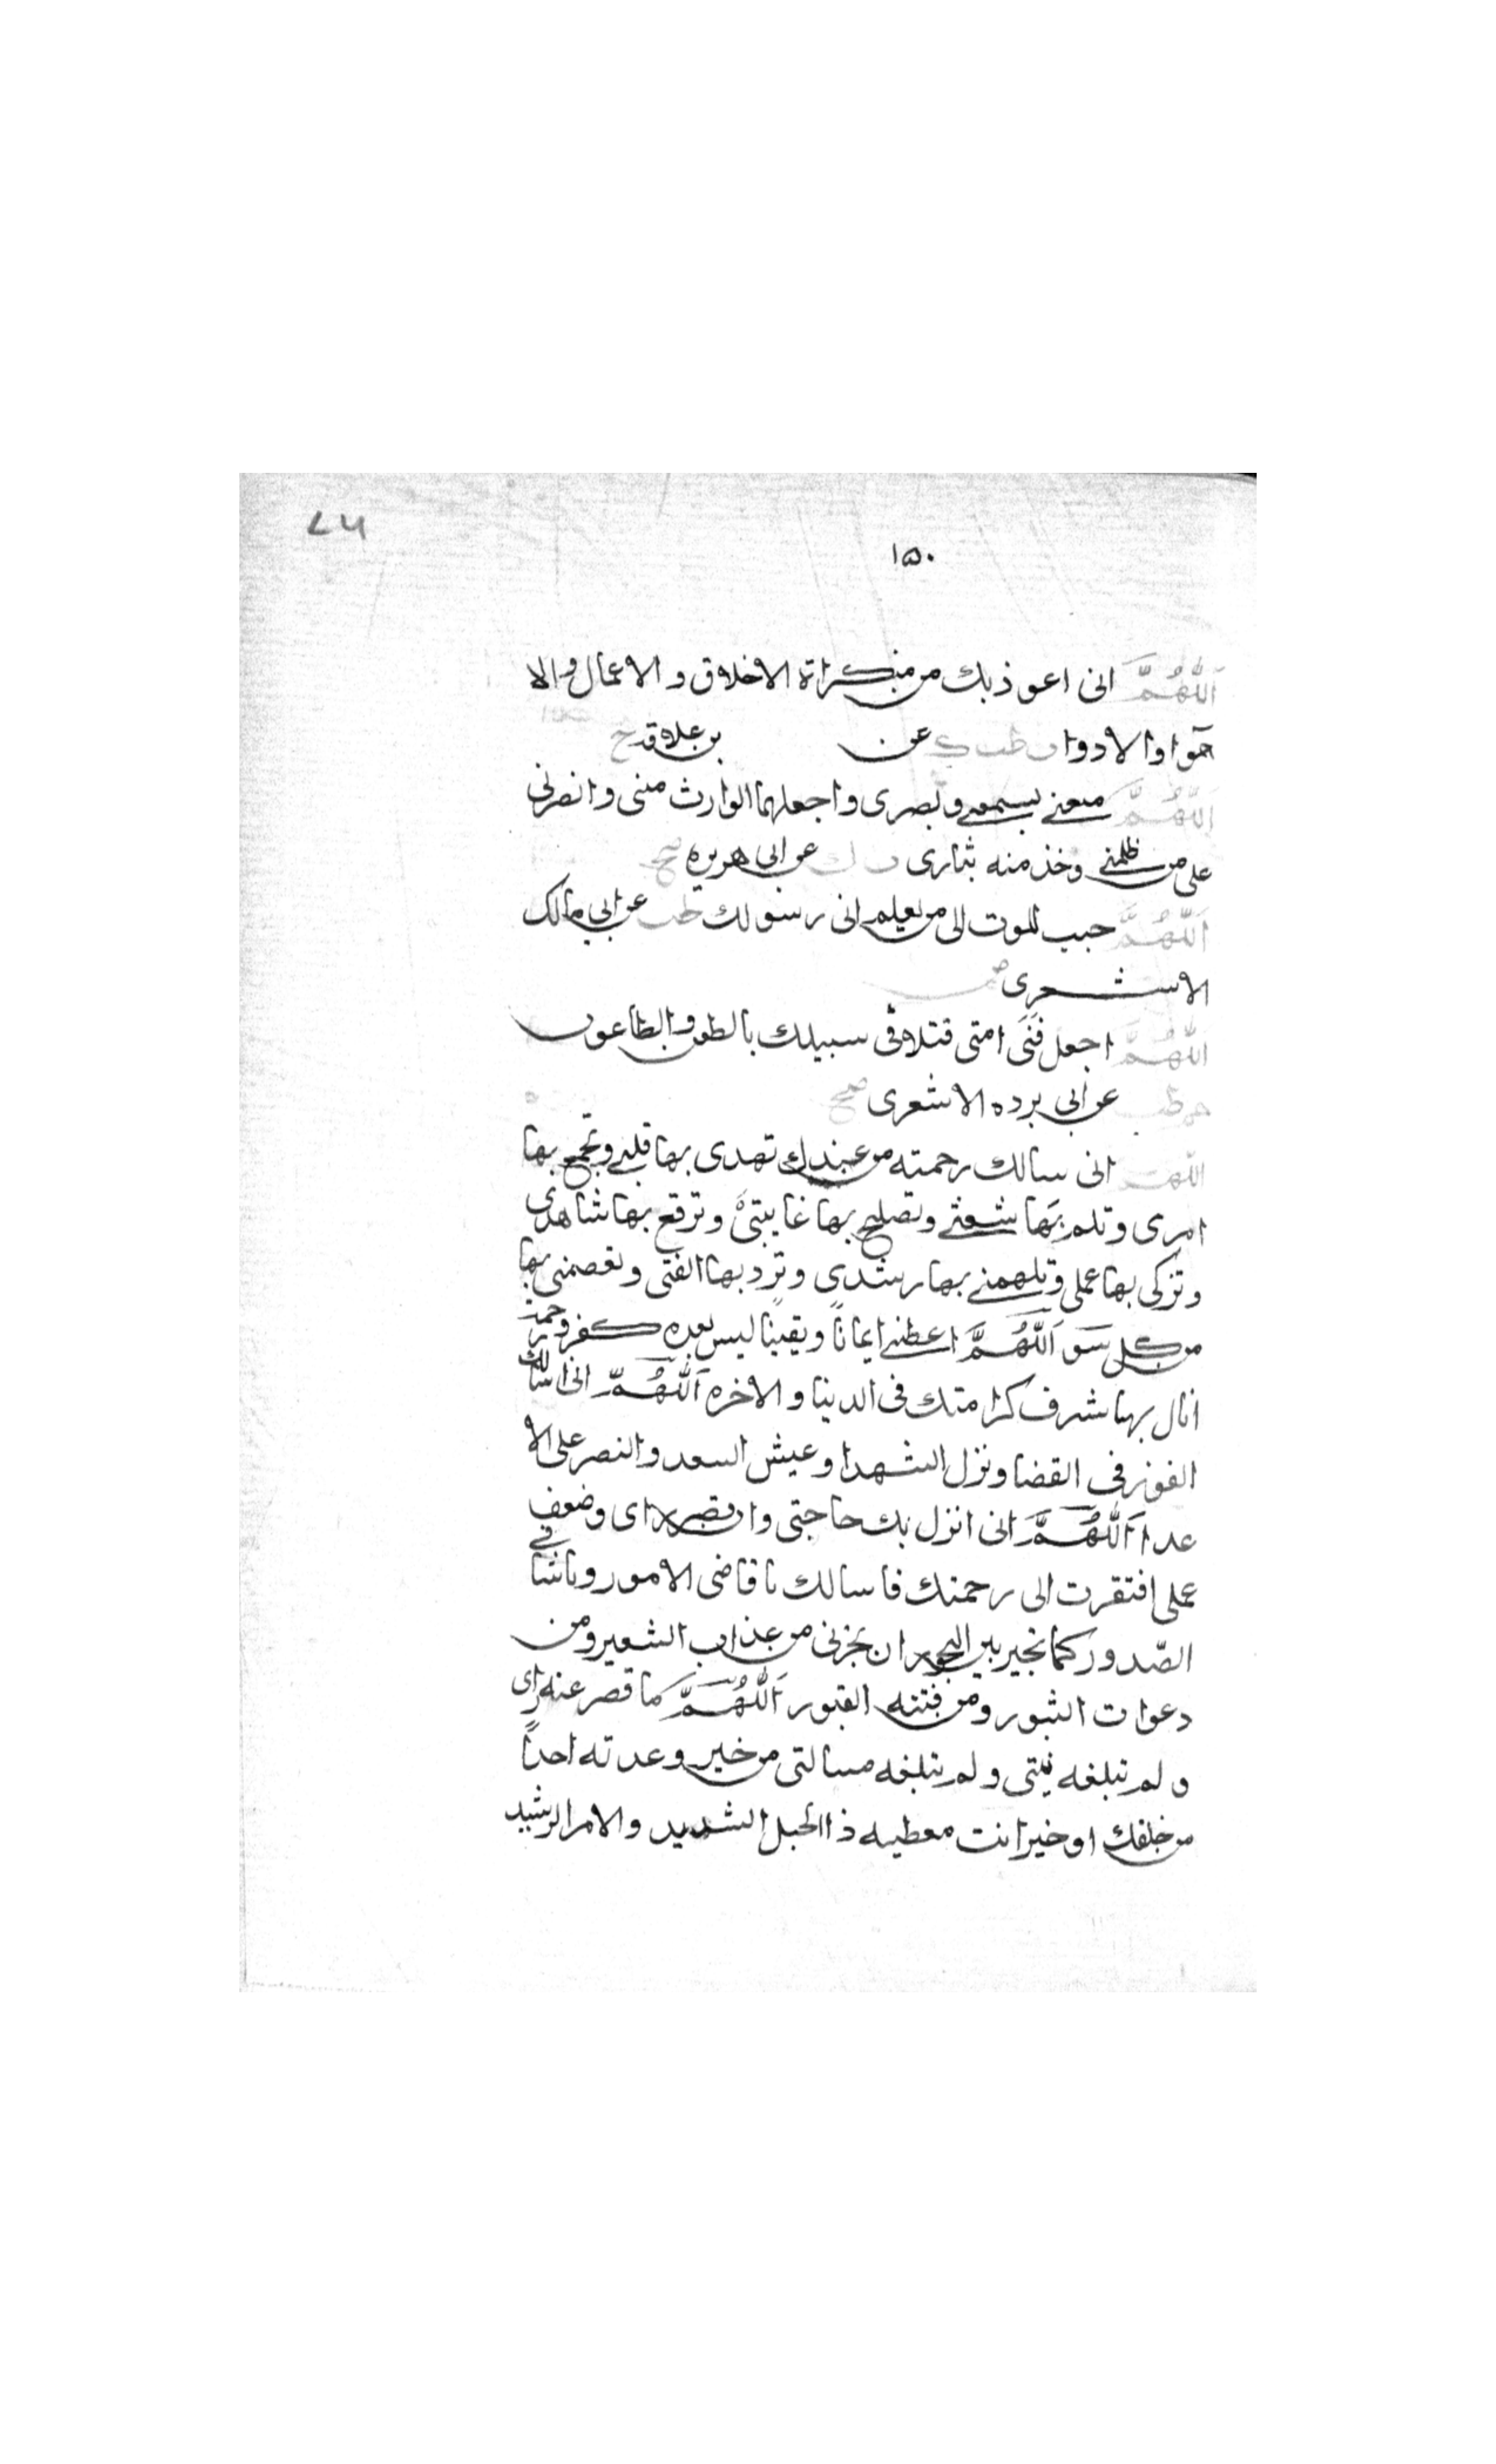 ١٥٠
اَللّٰهُمَّ انى اعوذبك من منكراة الاخلاق و الاعمال والا
هوا والادوا ت طب ك عن بن علاقه ح
اَللّٰهُمَّ متعنى بسمعى وبصرى واجعلهما الوارث منى وانصرنى
على من ظلمنى وخذ منه بثارى ت ك عن ابى هريره صح
اَللّٰهُمَّ حبب الموت الى من يعلم انى رسولك طب عن ابى مالك
الاشعرى
اَللّٰهُمَّ اجعل فنى امتى قتلا فى سبيلك بالطعن والطاعون
حم طب عن ابى برده الاشعرى صح
اللهم انى سالك رحمته من عندك تهدى بها قلبى وتجمع بها
امرى وتلم بها شعثى وتصلح بها غايبتى وترفع بها شاهدى
وتزكى بها عملى وتلهمنى بها رشدى وترد بها الفتى وتعصمنى بها
من كل سو اَللّٰهُمَّ اعطنى ايمانًا ويقينًا ليس بعده كفر ورحمة
انال بها شرف كرامتك فى الدنيا والاخره اَللّٰهُمَّ انى اسالك
الفوز فى القضا ونزل الشهدا وعيش السعد والنصر على الا
عدا اَللّٰهُمَّ انى انزل بك حاجتى وان قصر راى وضعف
عملى افتقرت الى رحمتك فاسالك يا قاضى الامور ويا شافى
الصّدور كما تجير بين البحور ان تجرنى من عذاب الشعير ومن
دعوات الثبور ومن فتنه القبور اَللّٰهُمَّ ما قصر عنه راى
ولم تبلغه نيتى ولم تبلغه مسالتى من خير وعدته احدًا
من خلقك او خير انت معطيه ذا الحبل الشديد والامر الرشيد